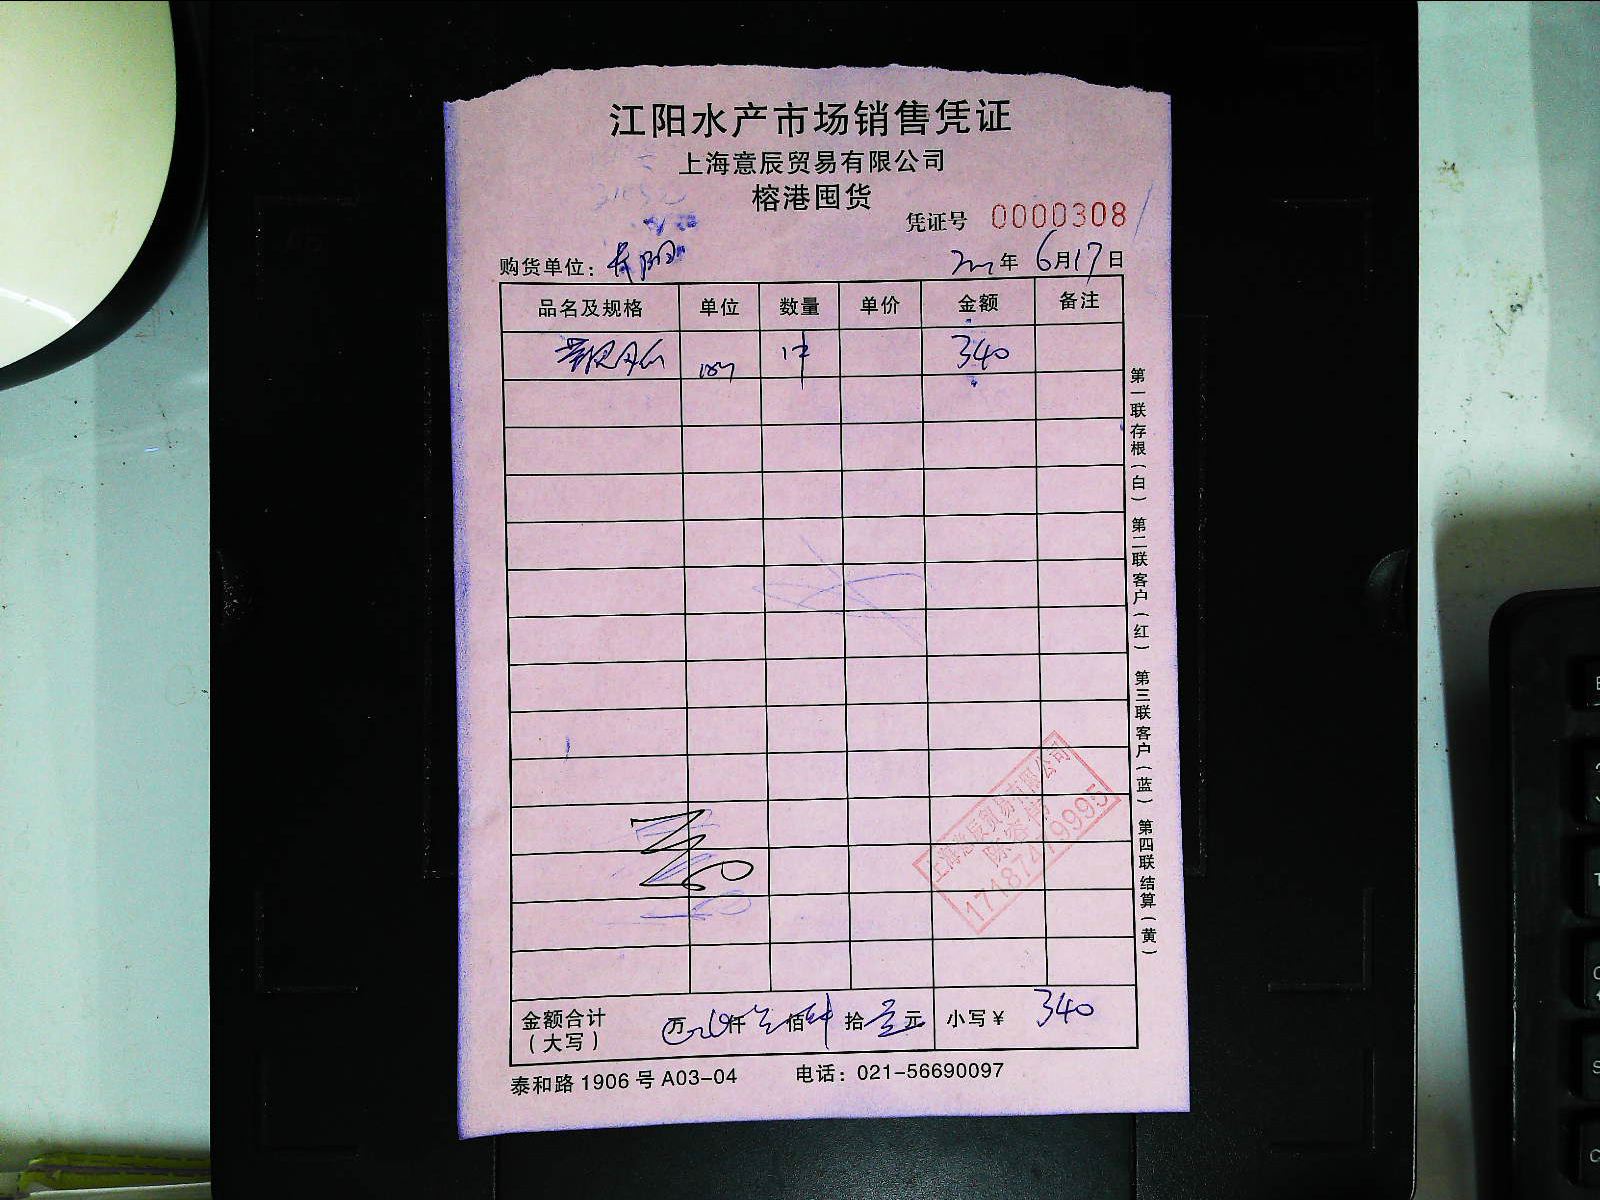 江阳水产市场销售凭证
上海意辰贸易有限公司
榕港囤货
凭证号 0000308
购货单位： 年 6月17日
品名及规格 单位 数量 单价 金额 备注
340
第一联存根（白） 第二联客户（红） 第三联客户（蓝） 第四联结算（黄）
上海意辰贸易有限公司
金额合计 万 仟 佰 拾 元 小写￥ 340
（大写）
泰和路1906号A03-04 电话：021-56690097